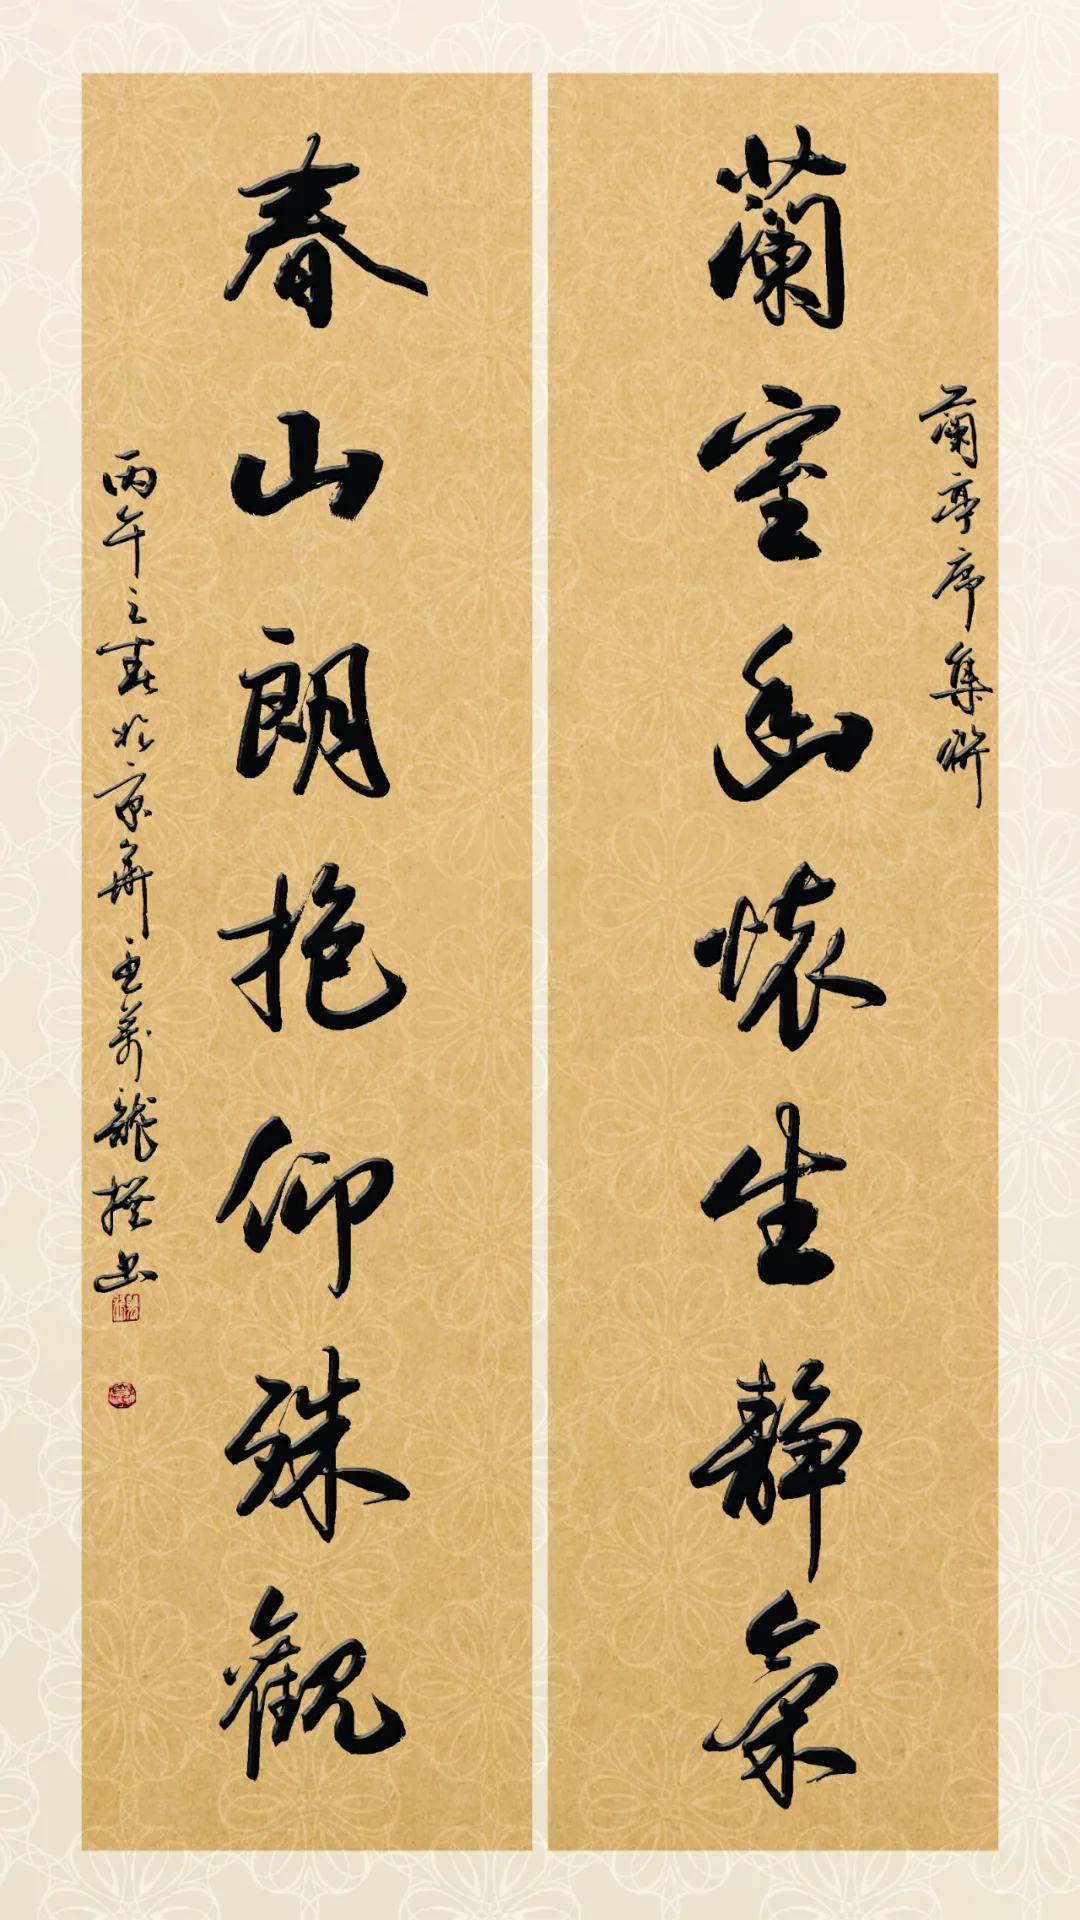 蘭亭序集聯
蘭室幽懷生靜氣
春山朗抱仰殊觀
丙午之春於京華孟萬龍撰書